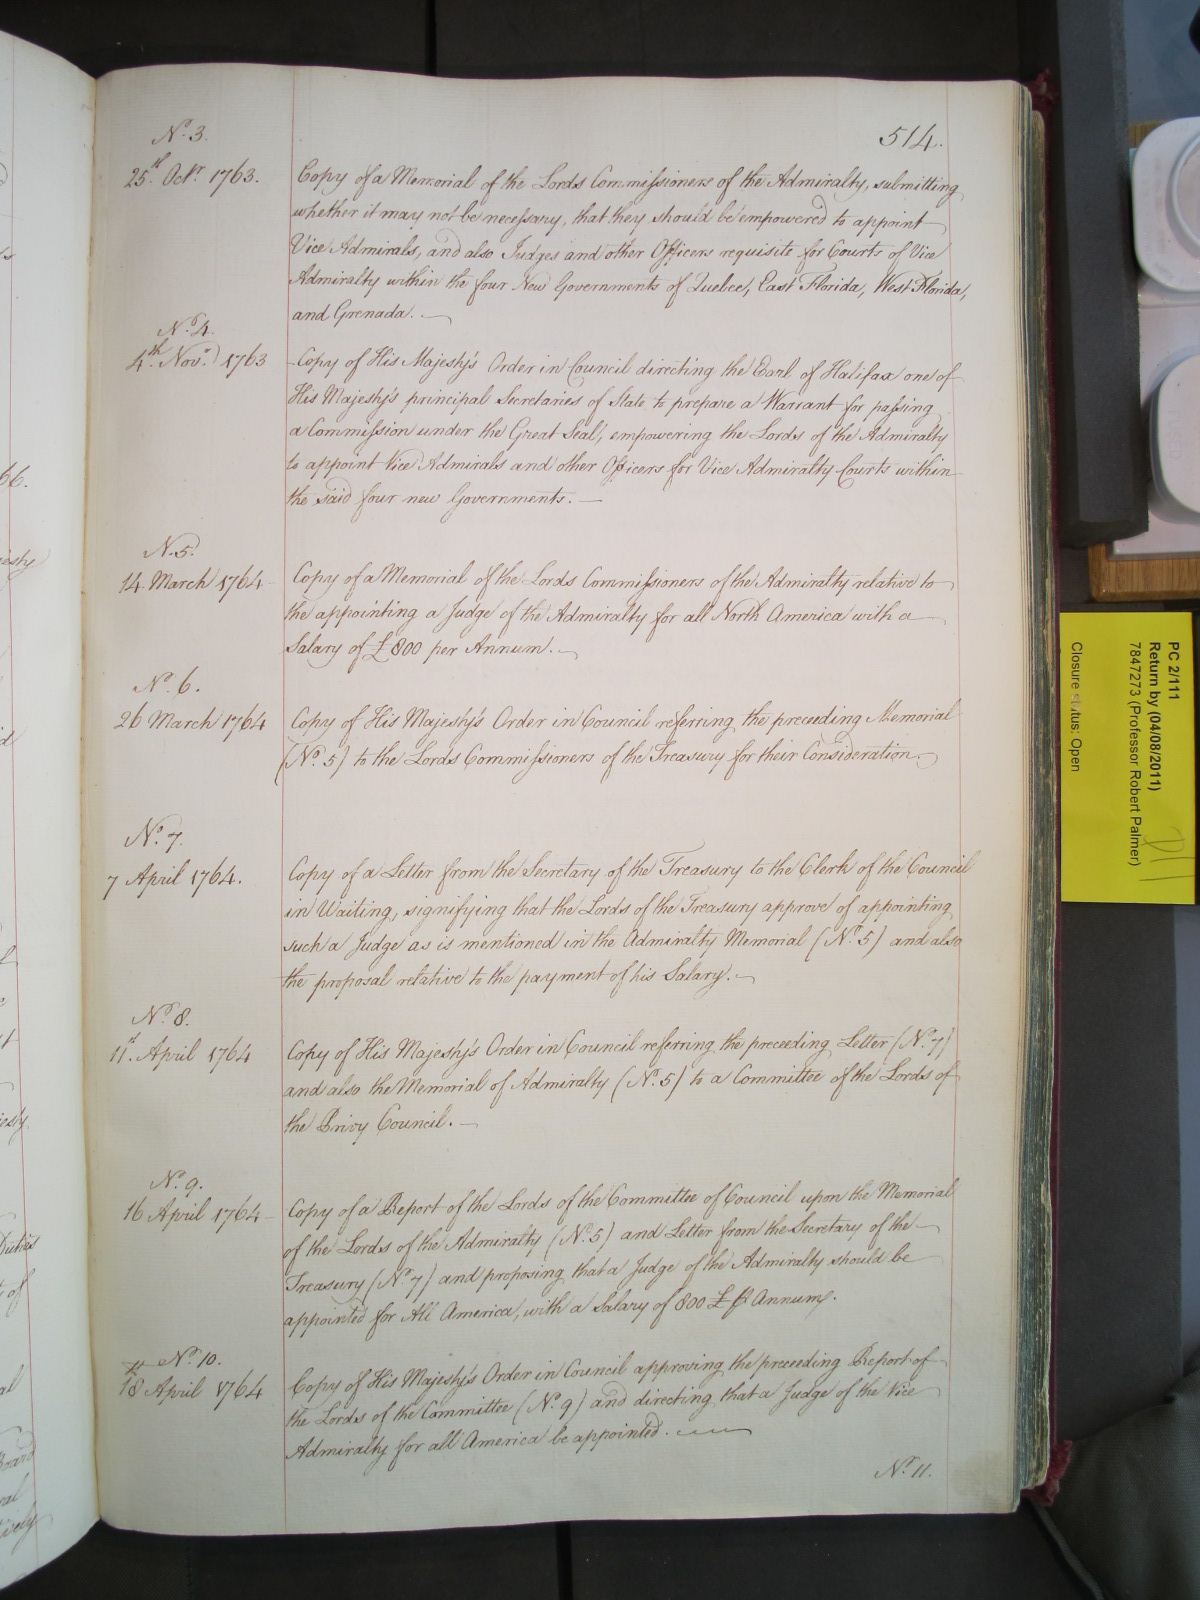 514.
No. 3.
25th. Octr. 1763.
Copy of a Memorial of the Lords Commissioners of the Admiralty, submitting
whether it may not be necessary, that they should be empowered to appoint
Vice Admirals, and also Judges and other Officers requisite for Courts of Vice
Admiralty within the four New Governments of Quebec, East Florida, West Florida,
and Grenada.
No. 4.
4th. Novr. 1763
Copy of His Majesty's Order in Council directing the Earl of Halifax one of
His Majesty's principal Secretaries of State to prepare a Warrant for passing
a Commission under the Great Seal, empowering the Lords of the Admiralty
to appoint Vice Admirals and other Officers for Vice Admiralty Courts within
the said four new Governments.
No. 5.
14. March 1764
Copy of a Memorial of the Lords Commissioners of the Admiralty relative to
the appointing a Judge of the Admiralty for all North America with a
Salary of £800 per Annum.
No. 6.
26 March 1764
Copy of His Majesty's Order in Council referring the preceeding Memorial
(No. 5) to the Lords Commissioners of the Treasury for their Consideration.
No. 7.
7 April 1764.
Copy of a Letter from the Secretary of the Treasury to the Clerk of the Council
in Waiting, signifying that the Lords of the Treasury approve of appointing
such a Judge as is mentioned in the Admiralty Memorial (No. 5) and also
the proposal relative to the payment of his Salary.
No. 8.
11st. April 1764
Copy of His Majesty's Order in Council referring the preceeding Letter (No. 7)
and also the Memorial of Admiralty (No. 5) to a Committee of the Lords of
the Privy Council.
No. 9.
16 April 1764
Copy of a Report of the Lords of the Committee of Council upon the Memorial
of the Lords of the Admiralty (No. 5) and Letter from the Secretary of the
Treasury (No. 7) and proposing that a Judge of the Admiralty should be
appointed for All America, with a Salary of 800 £ p Annum.
No. 10.
18 April 1764
Copy of His Majesty's Order in Council approving the preceeding Report of
the Lords of the Committee (No. 9) and directing that a Judge of the Vice
Admiralty for all America be appointed.
No. 11.
PC 2/111
Return by (04/08/2011)
7847273 (Professor Robert Palmer)
Closure status: Open